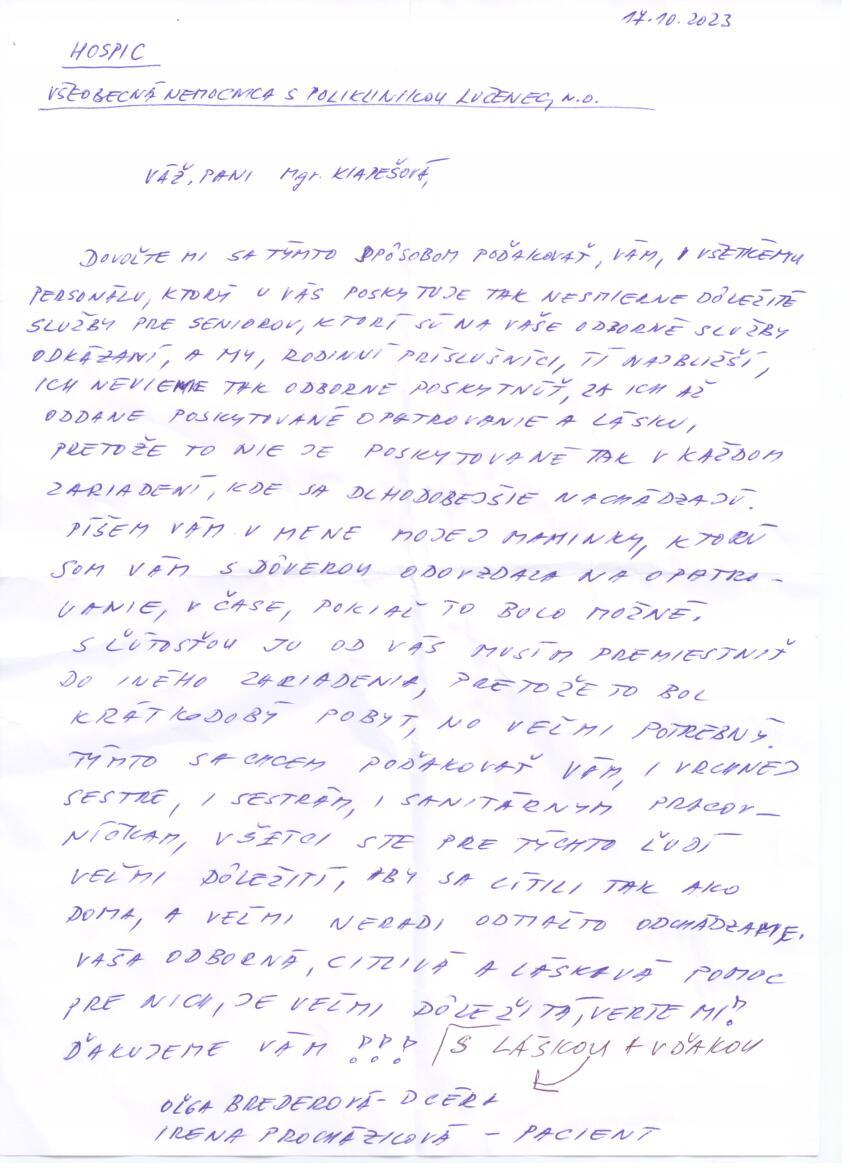 17.10.2023
HOSPIC
VŠEOBECNÁ NEMOCNICA S POLIKLINIKOU LUČENEC, N.O.
VÁŽ. PANI Mgr. KIAPEŠOVÁ,
DOVOĽTE MI SA TÝMTO SPÔSOBOM POĎAKOVAŤ, VÁM, I VŠETKÉMU
PERSONÁLU, KTORÝ U VÁS POSKYTUJE TAK NESMIERNE DÔLEŽITÉ
SLUŽBY PRE SENIOROV, KTORÍ SÚ NA VAŠE ODBORNÉ SLUŽBY
ODKÁZANÍ, A MY, RODINNÍ PRÍSLUŠNÍCI, TÍ NAJBLIŽŠÍ,
ICH NEVIEME TAK ODBORNE POSKYTNÚŤ, ZA ICH AŽ
ODDANE POSKYTOVANÉ OPATROVANIE A LÁSKU,
PRETOŽE TO NIE JE POSKYTOVANÉ TAK V KAŽDOM
ZARIADENÍ, KDE SA DLHODOBEJŠIE NACHÁDZAJÚ.
PÍŠEM VÁM V MENE MOJEJ MAMINKY, KTORÚ
SOM VÁM S DÔVEROU ODOVZDALA NA OPATRO-
VANIE, V ČASE, POKIAĽ TO BOLO MOŽNÉ.
S ĽÚTOSŤOU JU OD VÁS MUSÍM PREMIESTNIŤ
DO INÉHO ZARIADENIA, PRETOŽE TO BOL
KRÁTKODOBÝ POBYT, NO VEĽMI POTREBNÝ.
TÝMTO SA CHCEM POĎAKOVAŤ VÁM, I VRCHNEJ
SESTRE, I SESTRÁM, I SANITÁRNYM PRACOV-
NÍČKAM, VŠETCI STE PRE TÝCHTO ĽUDÍ
VEĽMI DÔLEŽITÍ, ABY SA CÍTILI TAK AKO
DOMA, A VEĽMI NERADI ODTIAĽTO ODCHÁDZAME.
VAŠA ODBORNÁ, CITLIVÁ A LÁSKAVÁ POMOC
PRE NICH, JE VEĽMI DÔLEŽITÁ, VERTE MI!!
ĎAKUJEME VÁM !!! S LÁSKOU A VĎAKOU
OĽGA BREDEROVÁ - DCÉRA
IRENA PROCHÁZKOVÁ - PACIENT